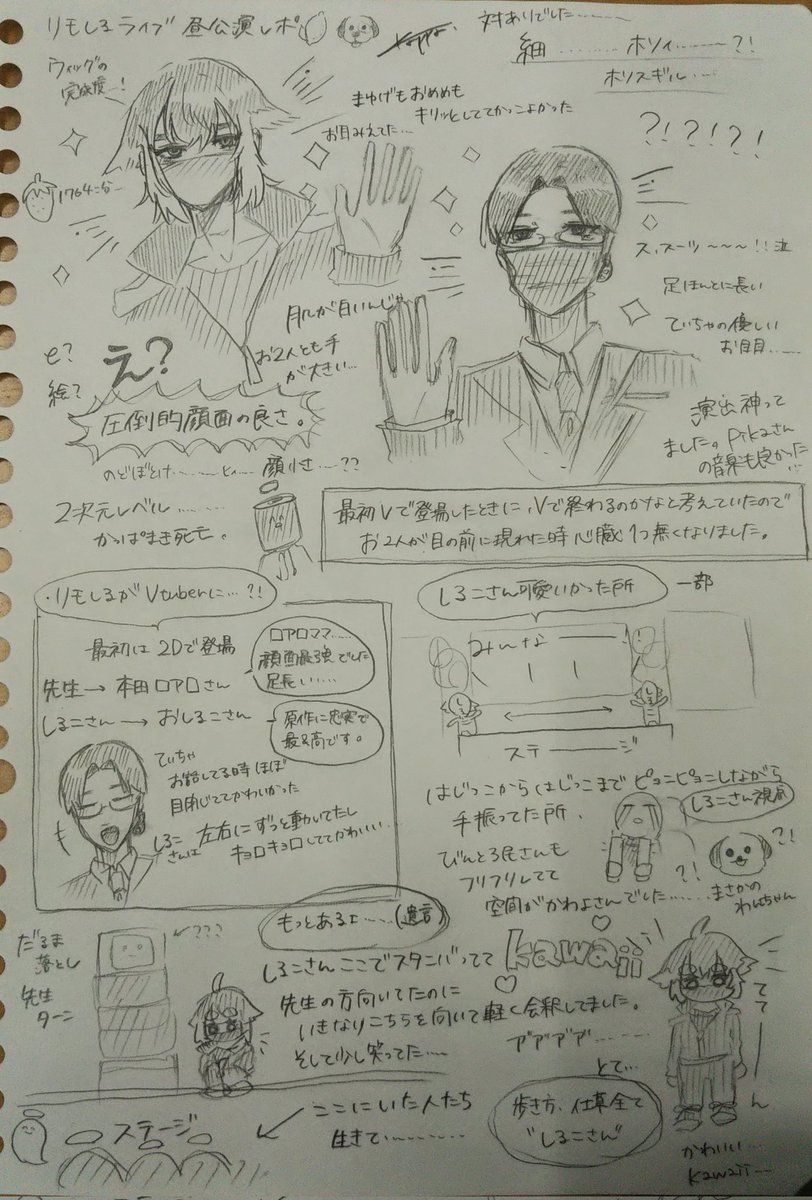 リモしるライブ 昼公演レポ
対ありでした……
細……ホソイ……?!
ホソスギル…
ウィッグの
完成度…!
まゆげもおめめも
キリッとしててかっこよかった
お目みえてた…
?!?!?!
ス、スーツ〜〜〜!!泣
足ほんとに長い
ていちゃの優しい
お目目…
肌が白いんじゃ
お2人とも手
が大きい…
e?
絵?
え?
圧倒的顔面の良さ。
のどぼとけ……
顔小さ…??
演出神って
ました。Pikaさん
の音楽も良かった…
2次元レベル……
かっぱまき死亡。
最初Vで登場したときに、Vで終わるのかなと考えていたので
お2人が目の前に現れた時心臓1つ無くなりました。
・リモしるがVtuberに…?!
最初は2Dで登場
先生→本田ロアロさん
ロアロママ……
顔面最強でした
足長い……
しるこさん→おしるこさん
原作に忠実で
最&高です。
ていちゃ
お話してる時ほぼ
目閉じててかわいかった
しるこさんは
左右にずっと動いてたし
キョロキョロしててかわいい…
しるこさん可愛いかった所
一部
みんな
ステージ
はじっこからはじっこまでピョコピョコしながら
手振ってた所、
びんとろ民さんも
フリフリしてて
空間がかわよさんでした……
しるこさん視点
?!
?!
まさかの
わんちゃん
もっとあるよ……(遺言)
だるま
落とし
先生
ターン
???
しるこさんここでスタンバってて
先生の方向いてたのに
いきなりこちらを向いて軽く会釈してました。
そして少し笑ってた……
kawaii
アアアア……
とて…
てて
ん
ステージ
ここにいた人たち
生きて…………
歩き方、仕草全て
"しるこさん"
かわいい…
kawaii…